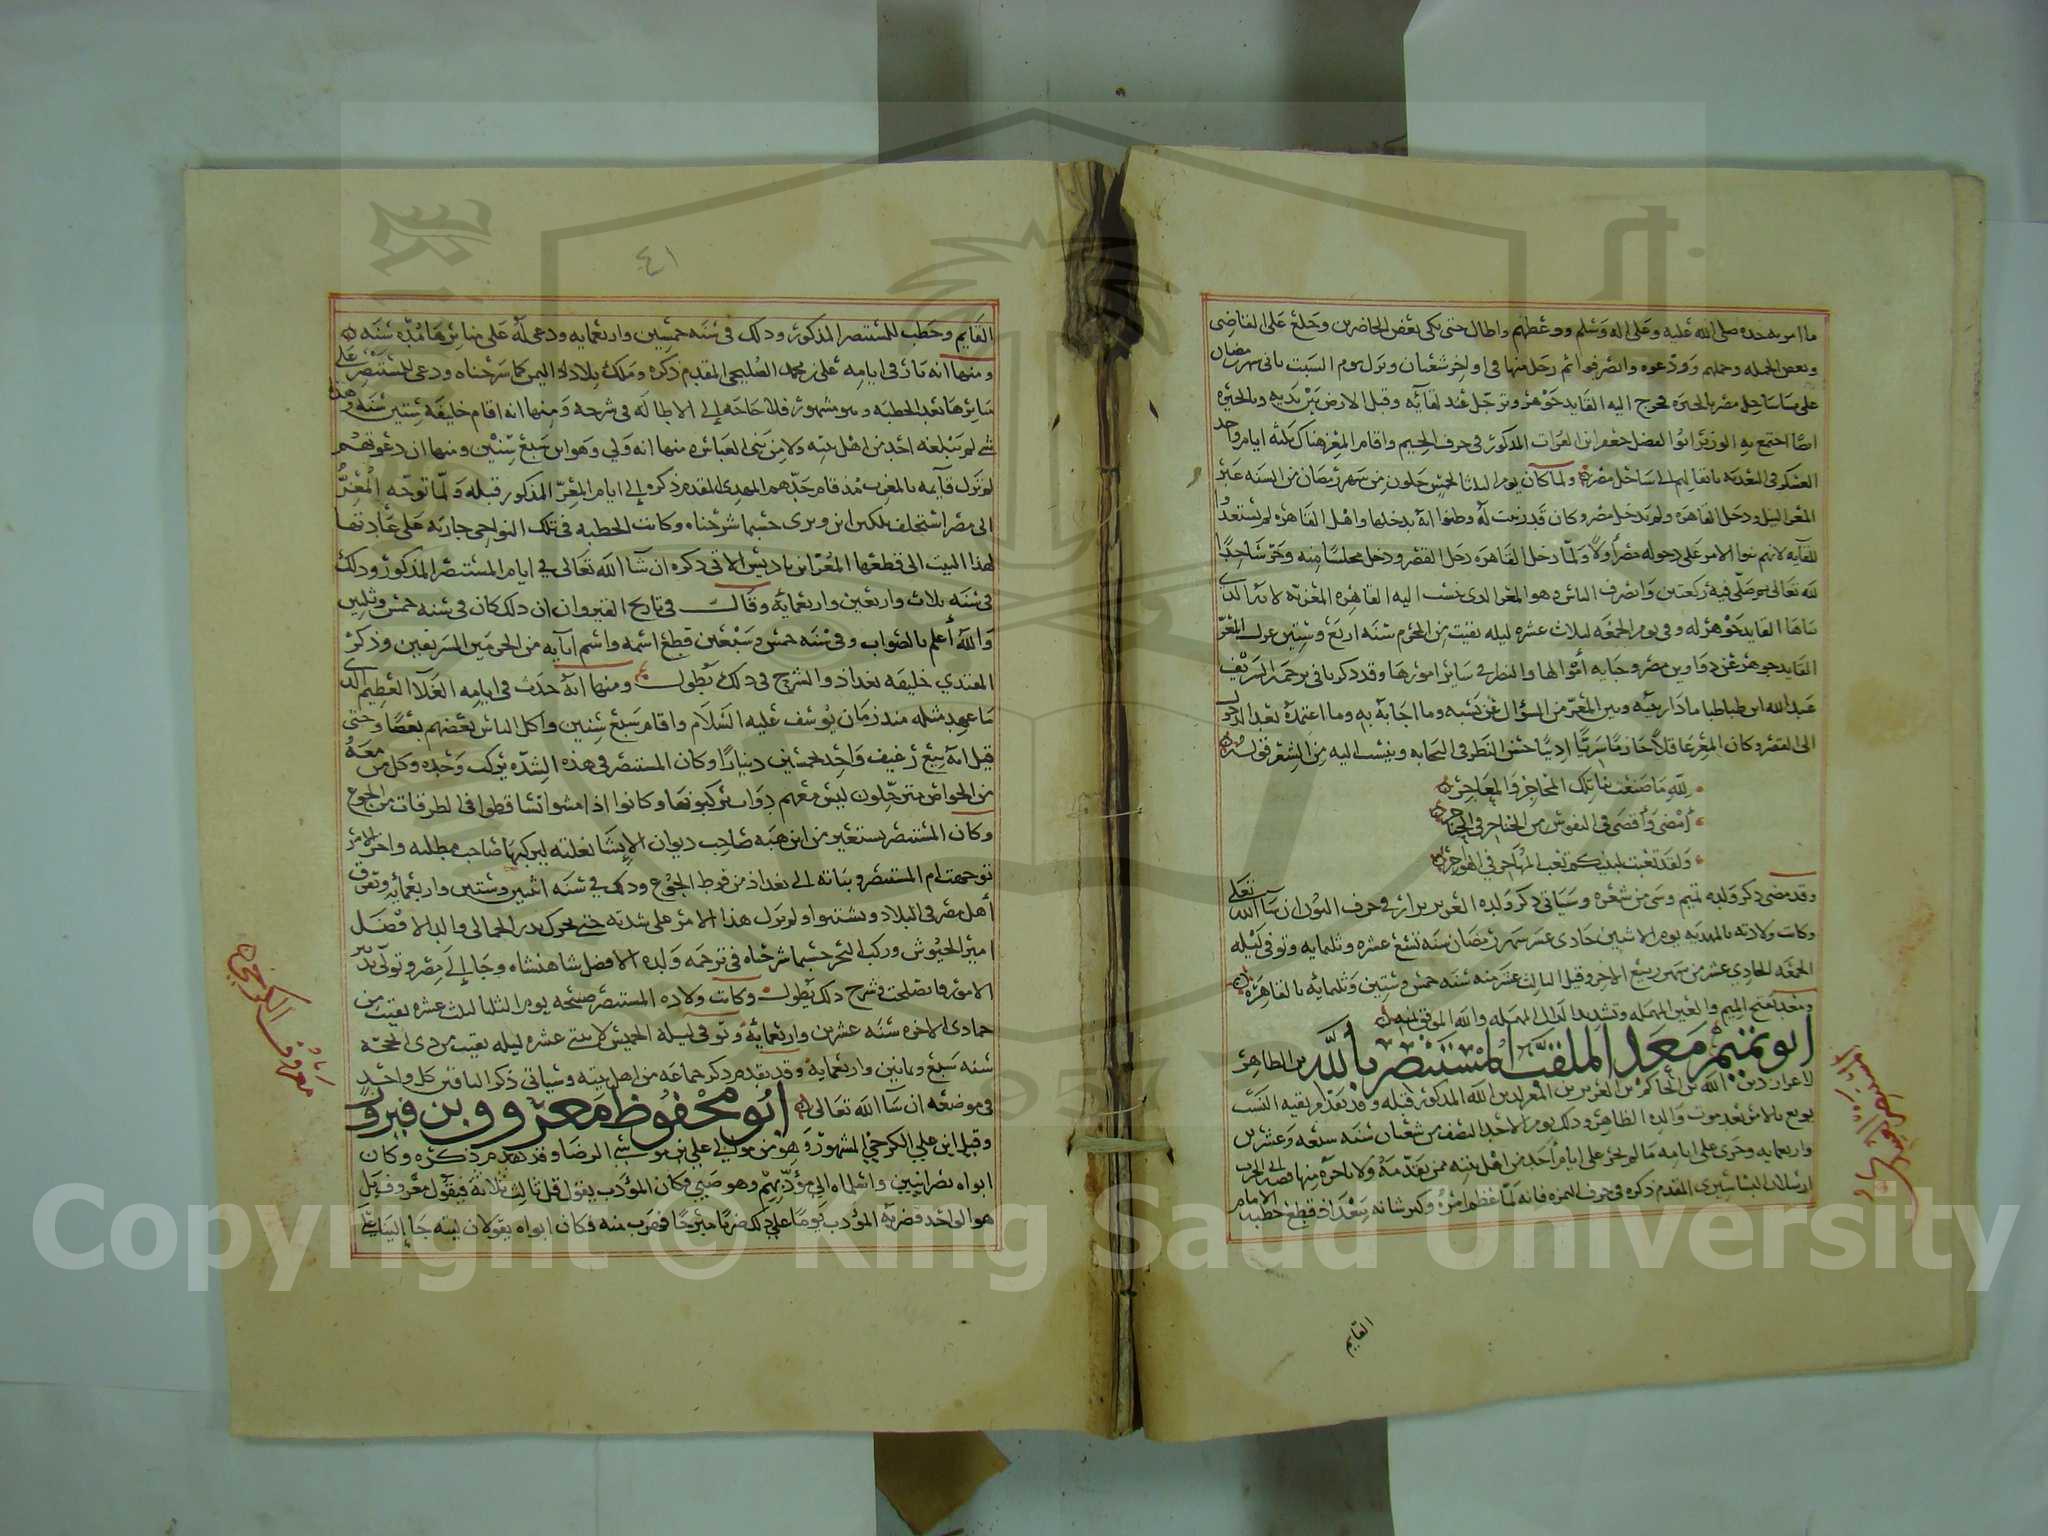 ما امر به جده صلى الله عليه وعلى اله وسلم ووعظهم واطال حتى بكى بعض الحاضرين وخلع على القاضي
وبعض الجماعه وحملهم وودعوه وانصرفوا ثم رحل منها في اواخر شعبان ونزل يوم السبت ثاني شهر رمضان
على ساحل مصر بالجيزه فخرج اليه القايد جوهر وترجل عند لقآيه وقبل الارض بين يديه وبالجيزه
ايضا اجتمع به الوزير ابو الفضل جعفر ابن الفرات المذكور في حرف الجيم واقام المعز هناك ثلثه ايام واخد
العسكر في التعديه باثقالهم الى ساحل مصر ولما كان يوم الثلثا لخمس خلون من شهر رمضان من السنه عبر
المعز النيل ودخل القاهره ولم يدخل مصر وكان قد زينت له وظنوا انه يدخلها واهل القاهره لم يستعدوا
للقآيه لانهم بنوا الامر على دخوله مصر اولا ولما دخل القاهره دخل القصر ودخل مجلسا منه وخر ساجدا
لله تعالى ثم صلى فيه ركعتين وانصرف الناس وهو المعز الدي تنسب اليه القاهره المعزيه لانه الذي
بناها القايد جوهر له وفي يوم الجمعه لثلاث عشره ليله بقيت من المحرم سنه اربع وستين عزل المعز
القايد جوهر عن دواوين مصر وجبايه أموالها والنظر في ساير امورها وقد دكرنا في ترجمه الشريف
عبد الله ابن طباطبا ما دار بينه وبين المعز من السؤال عن نسبه وما اجابه به وما اعتمده بعد الدخول
الى القصر وكان المعز عاقلا حازما سريا اديبا حسن النظر في النجابه وينسب اليه من الشعر قوله
لله ما صنعت بنا تلك المحاجر والمعاجر
أمضى وأقضى في النفوس من الخناجر في الحناجر
ولقد تعبت ببينكم تعب المهاجر في الهواجر
وقد مضى ذكر ولده تميم وشي من شعره وسياتي ذكر ولده العزيز نزار في حرف النون ان شآ الله تعلى
وكانت ولادته بالمهديه يوم الاثنين حادي عشر شهر رمضان سنه تسع عشره وثلثمايه وتوفي ليله
الجمعه الحادي عشر من شهر ربيع الاخر وقيل الثالث عشر منه سنه خمس وستين وثلثمايه بالقاهره
ومعد بفتح الميم والعين المهمله وتشديد الدال المهمله والله الموفق
ابو تميم معد الملقب المستنصر بالله بن الظاهر
لاعزاز دين الله بن الحاكم بن العزيز بن المعز لدين الله المذكور قبله وقد تقدم بقيه النسب
بويع بالامر بعد موت والده الظاهر ودلك يوم الاحد النصف من شعبان سنه سبعه وعشرين
واربعمايه وجرى على ايامه ما لم يجر على ايام أحد من اهل بيته ممن تقدمه ولا تاخره منها قضيه الحرب
ارسلان البساسيري المقدم ذكره في حرف الهمزه فانه لما عظم امره وكبر شانه ببغداد قطع خطبه الامام
القايم
المستنصر العبيدي
القايم وخطب للمستنصر المذكور ودلك في سنه خمسين واربعمايه ودعى له على منابرها مده سنه
ومنها انه ثار في ايامه على بن محمد الصليحي المقدم ذكره وملك بلاد اليمن كما شرحناه ودعى للمستنصر على
منابرها بعد الخطبه وهو مشهور فلا حاجه الى الاطاله في شرحه ومنها انه اقام خليفه ستين سنه وهذا
شي لم يبلغه احد من اهل بيته ولا من بني العباس ومنها انه ولي وهو ابن سبع سنين ومنها ان دعوتهم
لم تزل قآيمه بالمغرب مند قام جدهم المهدي المقدم ذكره إلى ايام المعز المذكور قبله ولما توجه المعز
الى مصر استخلف بلكين ابن زيري حسبما شرحناه وكانت الخطبه في تلك النواحي جاريه على عادتها
لهذا البيت الى قطعها المعز ابن باديس الاتي ذكره ان شآ الله تعالى في ايام المستنصر المذكور ودلك
في سنه ثلاث واربعين واربعمائه وقال في تاريخ القيروان ان دلك كان في سنه خمس وثلثين
والله أعلم بالصواب وفي سنه خمس وسبعين قطع اسمه واسم آبآيه من الحرمين الشريفين وذكر
المقتدي خليفه بغداد والشرح في دلك يطول ومنها انه حدث في ايامه الغلآ العظيم الدي
ما عهد مثله مند زمان يوسف عليه السلام واقام سبع سنين واكل الناس بعضهم بعضا وحتى
قيل انه بيع رغيف واحد بخمسين دينارا وكان المستنصر في هذه الشده يركب وحده وكل من معه
من الخواص مترجلون ليس معهم دواب يركبونها وكانوا اذا مشوا تساقطوا في الطرقات من الجوع
وكان المستنصر يستعير من ابن هبه صاحب ديوان الإنشا بغلته ليركبها صاحب مظلته واخر الامر
توجهت ام المستنصر وبناته الى بغداد من فرط الجوع ودلك في سنه اثنين وستين واربعمايه وتفرق
أهل مصر في البلاد وتشتتوا ولم يزل هذا الامر على شدته حتى تحرك بدر الجمالي والد الافضل
امير الجيوش وركب البحر حسبما شرحناه في ترجمه ولده الافضل شاهنشاه وجا إلى مصر وتولى تدبير
الامور فانصلحت وشرح دلك يطول وكانت ولاده المستنصر صبيحه يوم الثلثا لثلث عشره بقيت من
جمادى الاخره سنه عشرين واربعمايه وتوفي ليله الخميس لاثنتي عشره ليله بقيت من دي الحجه
سنه سبع وثمانين واربعمايه وقد تقدم ذكر جماعه من اهل بيته وسياتي ذكر الباقين كل واحد
في موضعه ان شا الله تعالى ابو محفوظ معروف بن فيروز
وقيل ابن علي الكرخي المشهور وهو من موالي علي بن موسى الرضا وقد تقدم ذكره وكان
ابواه نصرانيين واسلماه إلى مؤدبهم وهو صبي فكان المؤدب يقول قل ثالث ثلاثة فيقول معروف بل
هو الواحد فضربه المؤدب يوما على ذلك ضربا مبرحا فهرب منه فكان ابواه يقولان ليته جا إلينا على
معروف الكرخي
٤١